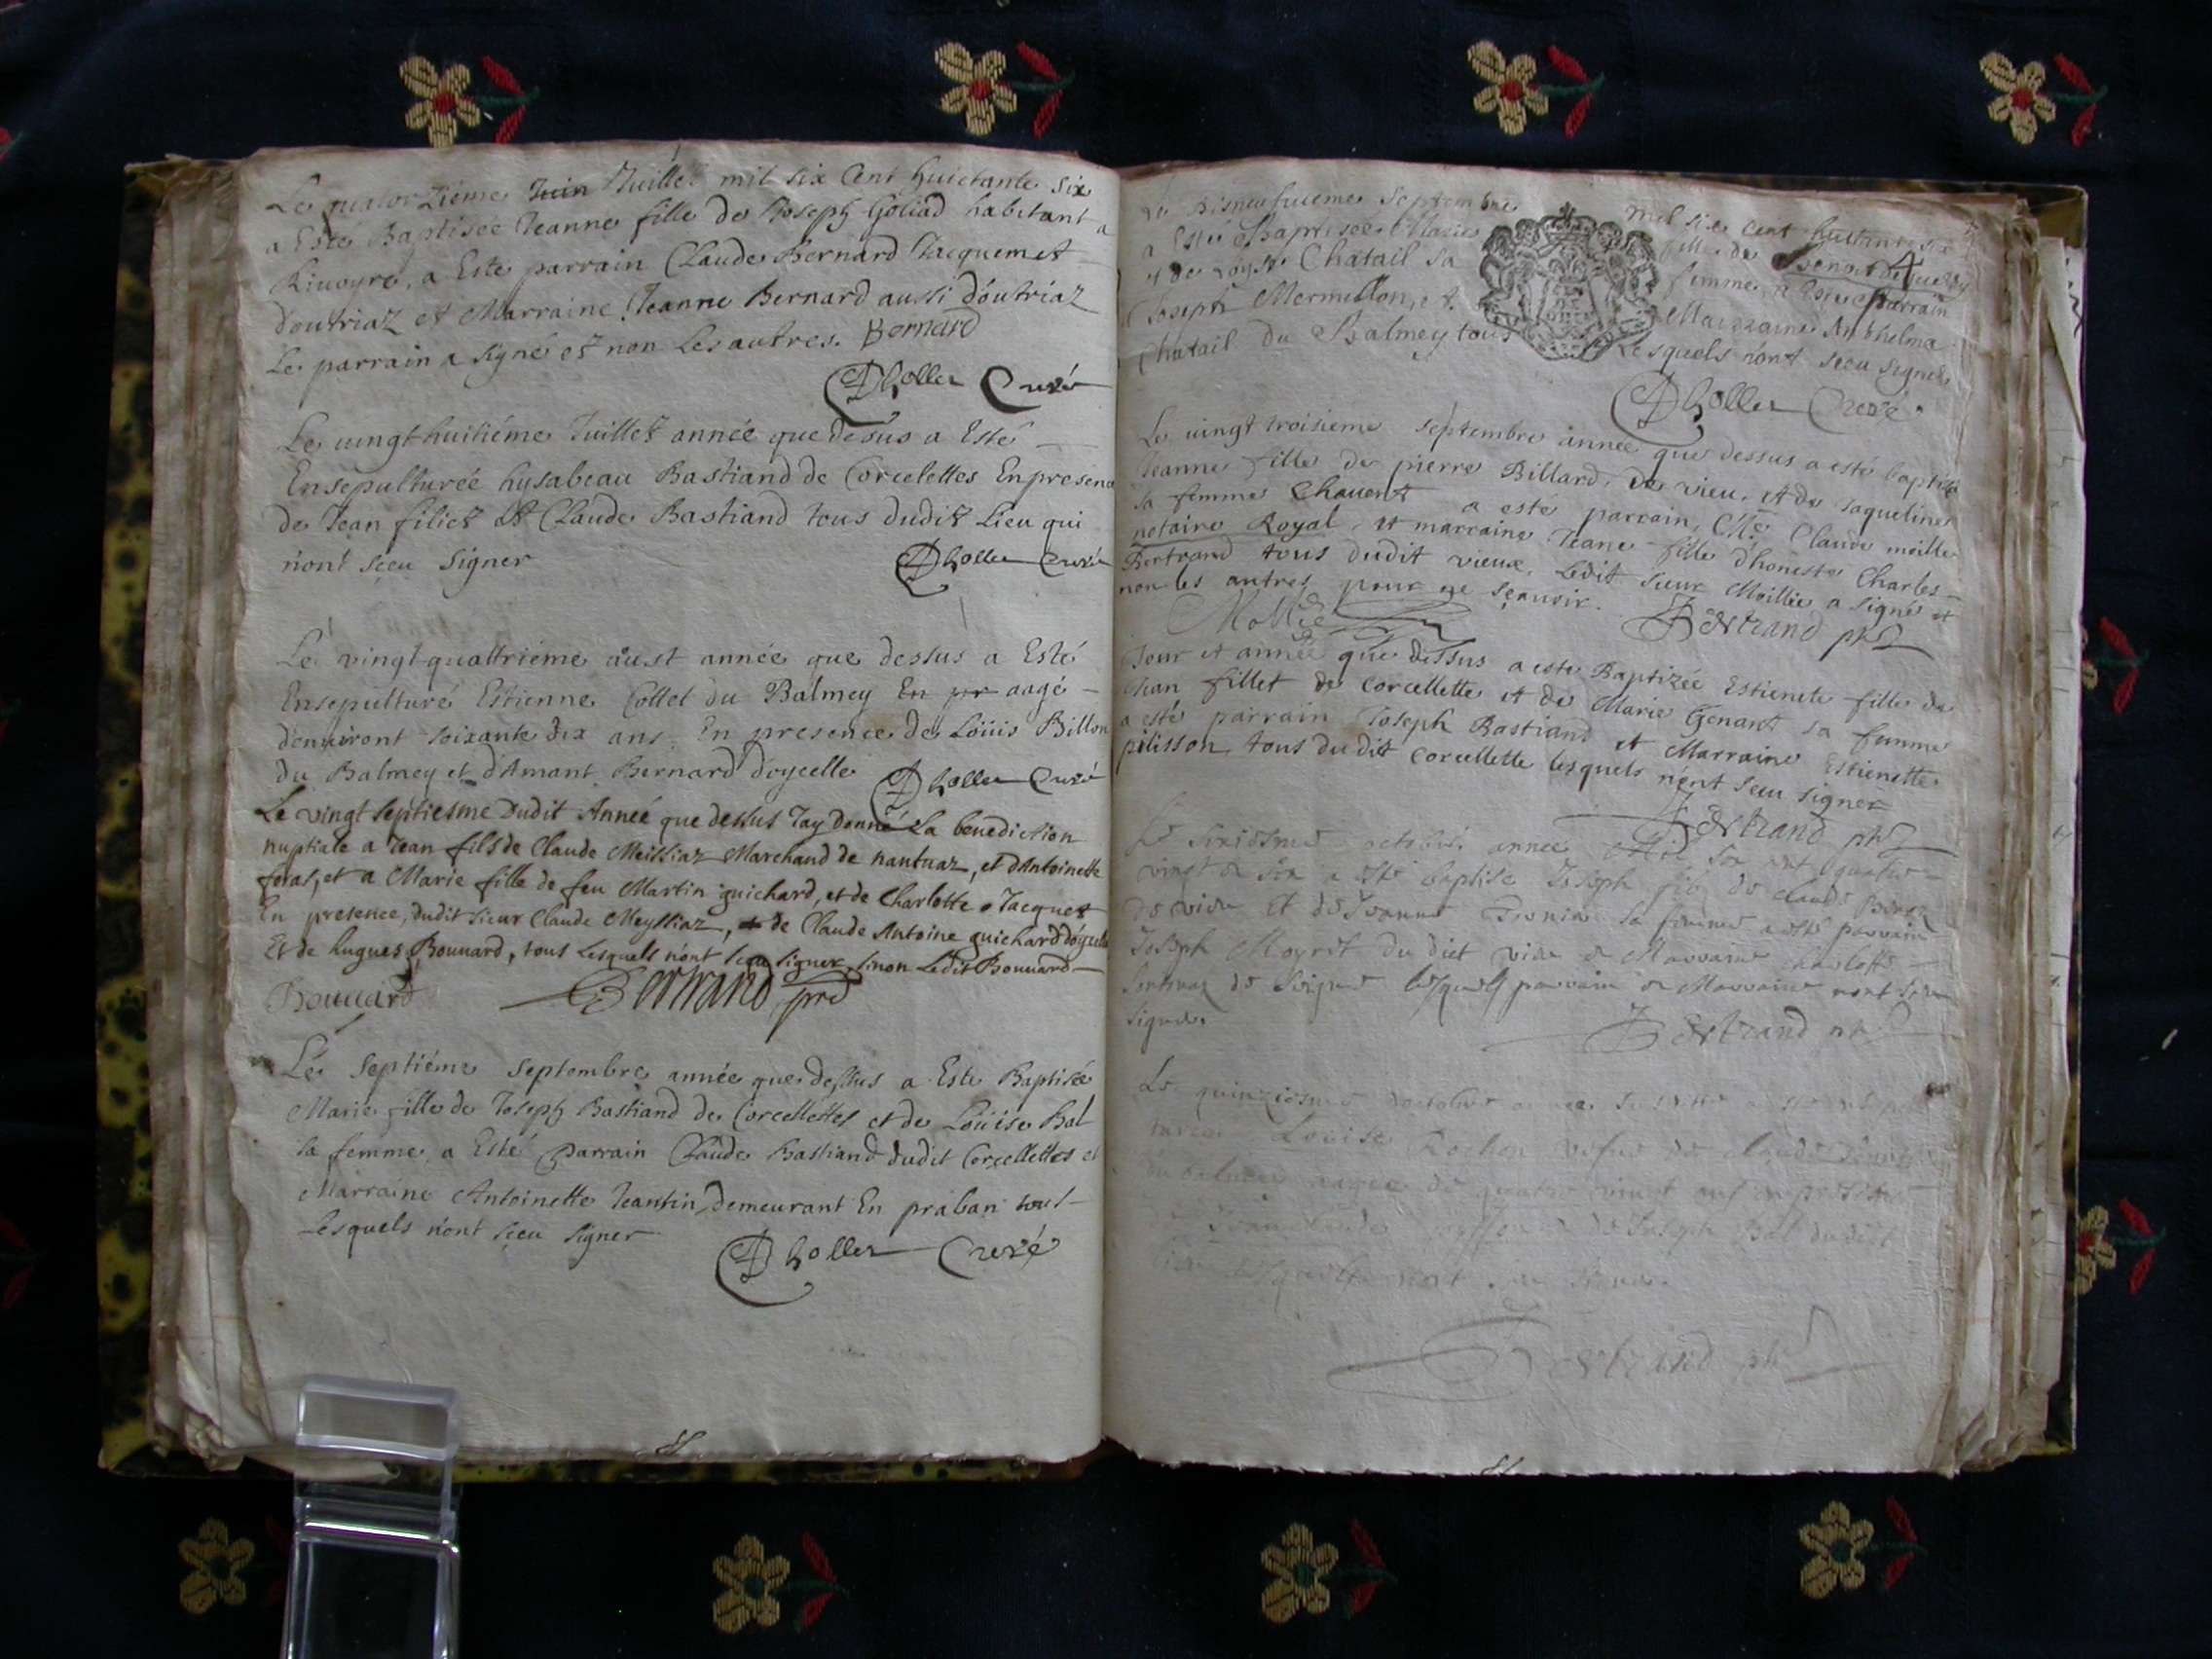 Le quatorziéme Juin Juillet mil six Cent huictante six
a Esté Baptisée Jeanne fille de Joseph Goliad habitant a
Riuoyre, a Este parrain Claude Bernard Jacquemet
doutriaz et Marraine Jeanne Bernard aussi d'outriaz
Le parrain a signé et non Les autres. Bernard
Dholler Curé
Le uingt huitiéme Juillet année que desus a Esté
Ensepulturée hysabeau Bastiand de Corcelettes En presence
de Jean filiet et Claude Bastiand tous dudit Lieu qui
n'ont sçeu signer
Dholler Curé
Le vingt quattriéme aust année que dessus a Esté
Ensepulturé Estienne Collet du Balmey En pr aagé
d'enuiront soixante dix ans. En presence de Loüis Billon
du Balmey et d'Amant Bernard d'oycelle
Dholler Curé
Le vingt septiesme Dudit Année que dessus Jay Donné La benediction
nuptiale a Jean fils de Claude Meissiaz Marchand de nantuaz, et d'Antoinette
foras, et a Marie fille de feu Martin guichard, et de Charlotte Jacquet
En presence, dudit sieur Claude Meyssiaz, de Claude Antoine guichard
Et de hugues Bouuard, tous Lesquels n'ont sceu signer, sinon Ledit Bouuard
Bouuard Bertrand pre
Le septiéme septembre année que dessus a Esté Baptisée
Marie fille de Joseph Bastiand de Corcellettes et de Loüise Bal
sa femme, a Esté Parrain Claude Bastiand dudit Corcellettes et
Marraine Antoinette Jeantin demeurant En praban tout
Lesquels n'ont sçeu signer
Dholler Curé
4
Le Disneufuieme Septembre mil six cent huictante six
a Esté Baptisée Marie fille de Benoit
et de Chatail sa femme, a Esté parrain
Joseph Mermillon, et Marraine Anthelma
Chatail du Balmey tous Lesquels n'ont sceu signer
Dholler Curé
Le uingt troisieme septembre année que dessus a esté baptisé
Jeanne fille de pierre Billard, de vieu, et de Jaqueline
sa femme Chauent a esté parrain, Me Claude moille
notaire Royal, et marraine Jeane fille d'honeste Charles
Bertrand tous dudit vieux. Ledit sieur Moillie a signé et
non les autres pour ne sçauoir.
Mollie Bertrand
Jour et année que dessus a este Baptizée Estienete fille de
Jean fillet de corcellette et de Marie Genant sa femme
a esté parrain Joseph Bastiand et Marraine Estienette
pilisson, tous du dit corcellette lesquels n'ont sceu signer
Bertrand
Le sixiesme octobre annee Mil six cent quatre
vingt et six a esté baptisé Joseph fils de Claude
de view et de Jeanne sa femme a esté parrain
Joseph Moyret du dict view et Marraine charlotte
de lesquels parrain et Marraine nont sceu
signer.
Bertrand
Le quinziesme doctobre annee
Louise Rochon vefue de Claude
du balmey aagee de quatre vingt
Joseph Bal dudict
lesquels nont sceu signer
Bertrand